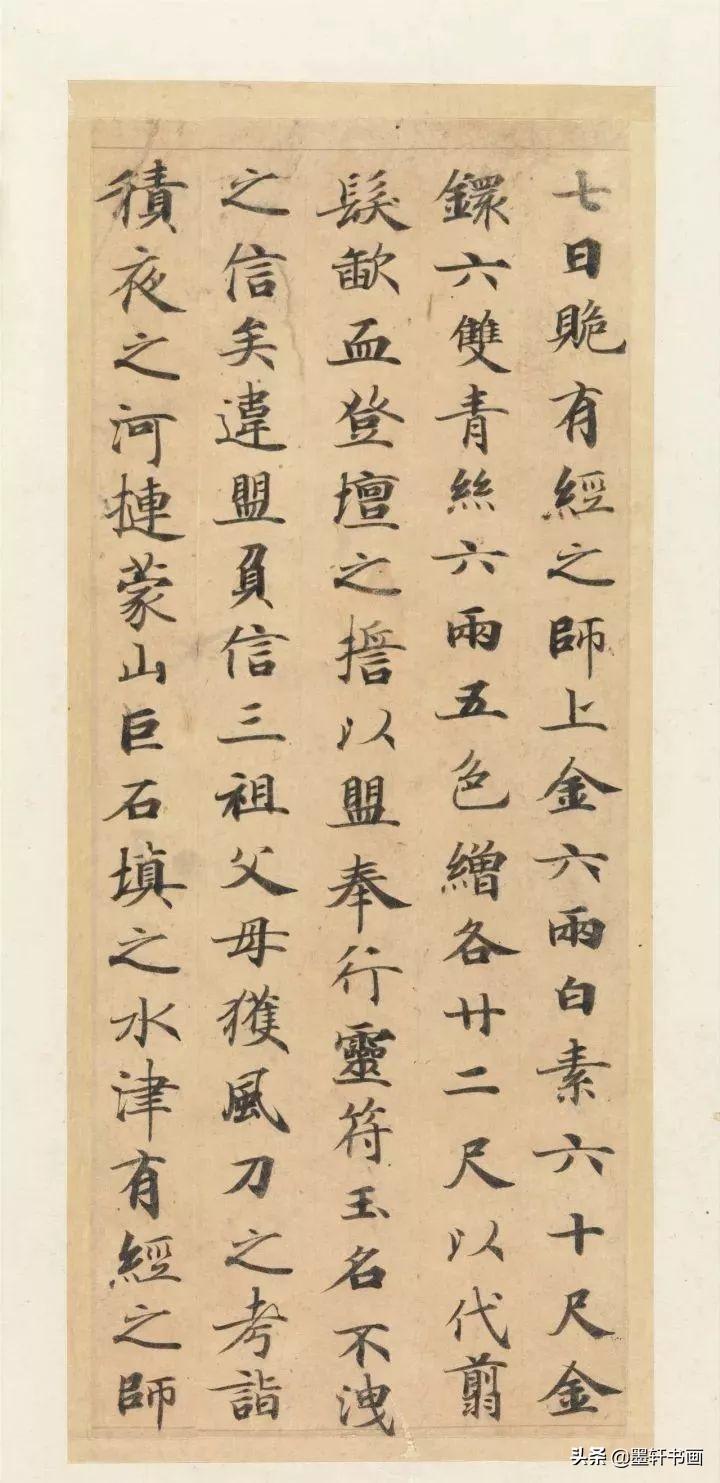 七日貹有經之師上金六兩白素六十尺金
鐶六雙青絲六兩五色繒各廿二尺以代翦
髮歃血登壇之擔以盟奉行靈符玉名不洩
之信矣違盟負信三祖父母獲風刀之考詣
積夜之河摙蒙山巨石填之水津有經之師
头条 @墨轩书画